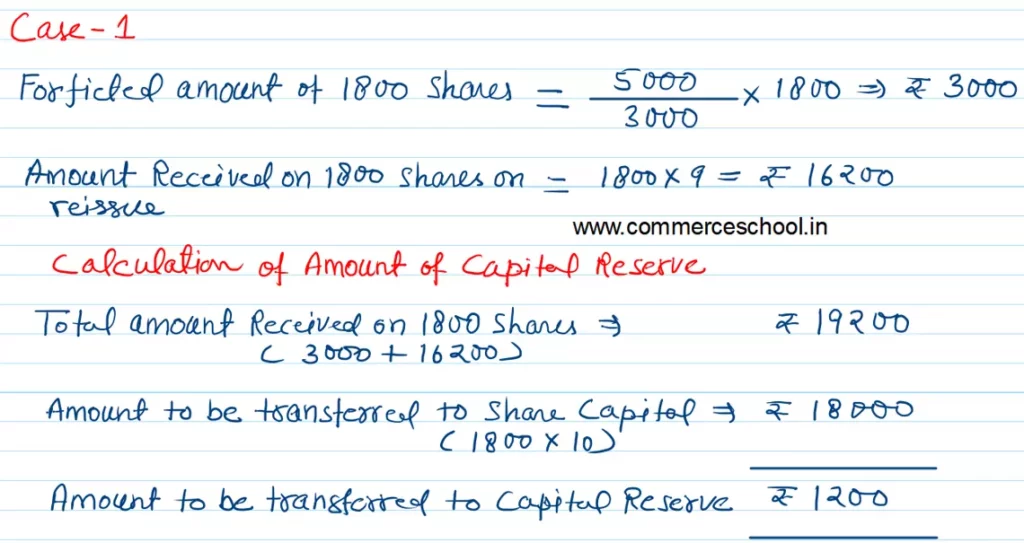 Case - 1
Forficted amount of 1800 Shares = 5000/3000 × 1800 ⇒ ₹ 3000
Amount Received on 1800 shares on = 1800 × 9 = ₹ 16200
reissue
www.commerceschool.in
Calculation of Amount of Capital Reserve
Total amount Received on 1800 shares ⇒ ₹ 19200
( 3000 + 16200)
Amount to be transferred to Share Capital ⇒ ₹ 18000
( 1800 × 10)
Amount to be transferred to Capital Reserve ₹ 1200